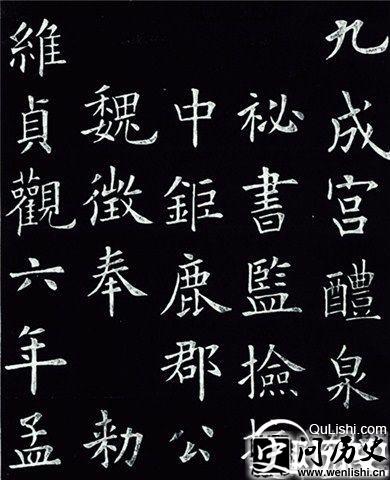 九成宮醴泉
祕書監撿
中鉅鹿郡公
魏徵奉 勑
維貞觀六年孟
QuLishi.com
问历史
www.wenlishi.com